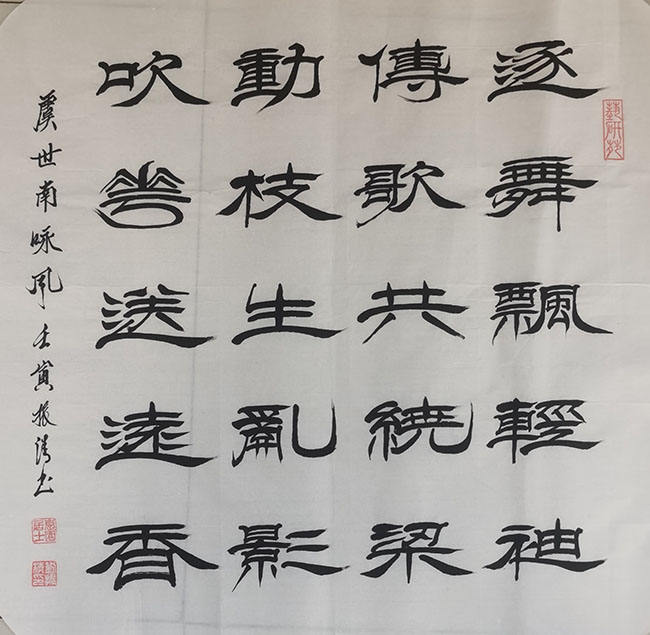 逐舞飄輕袖
傳歌共繞梁
動枝生亂影
吹花送遠香
虞世南咏風壬寅振清书